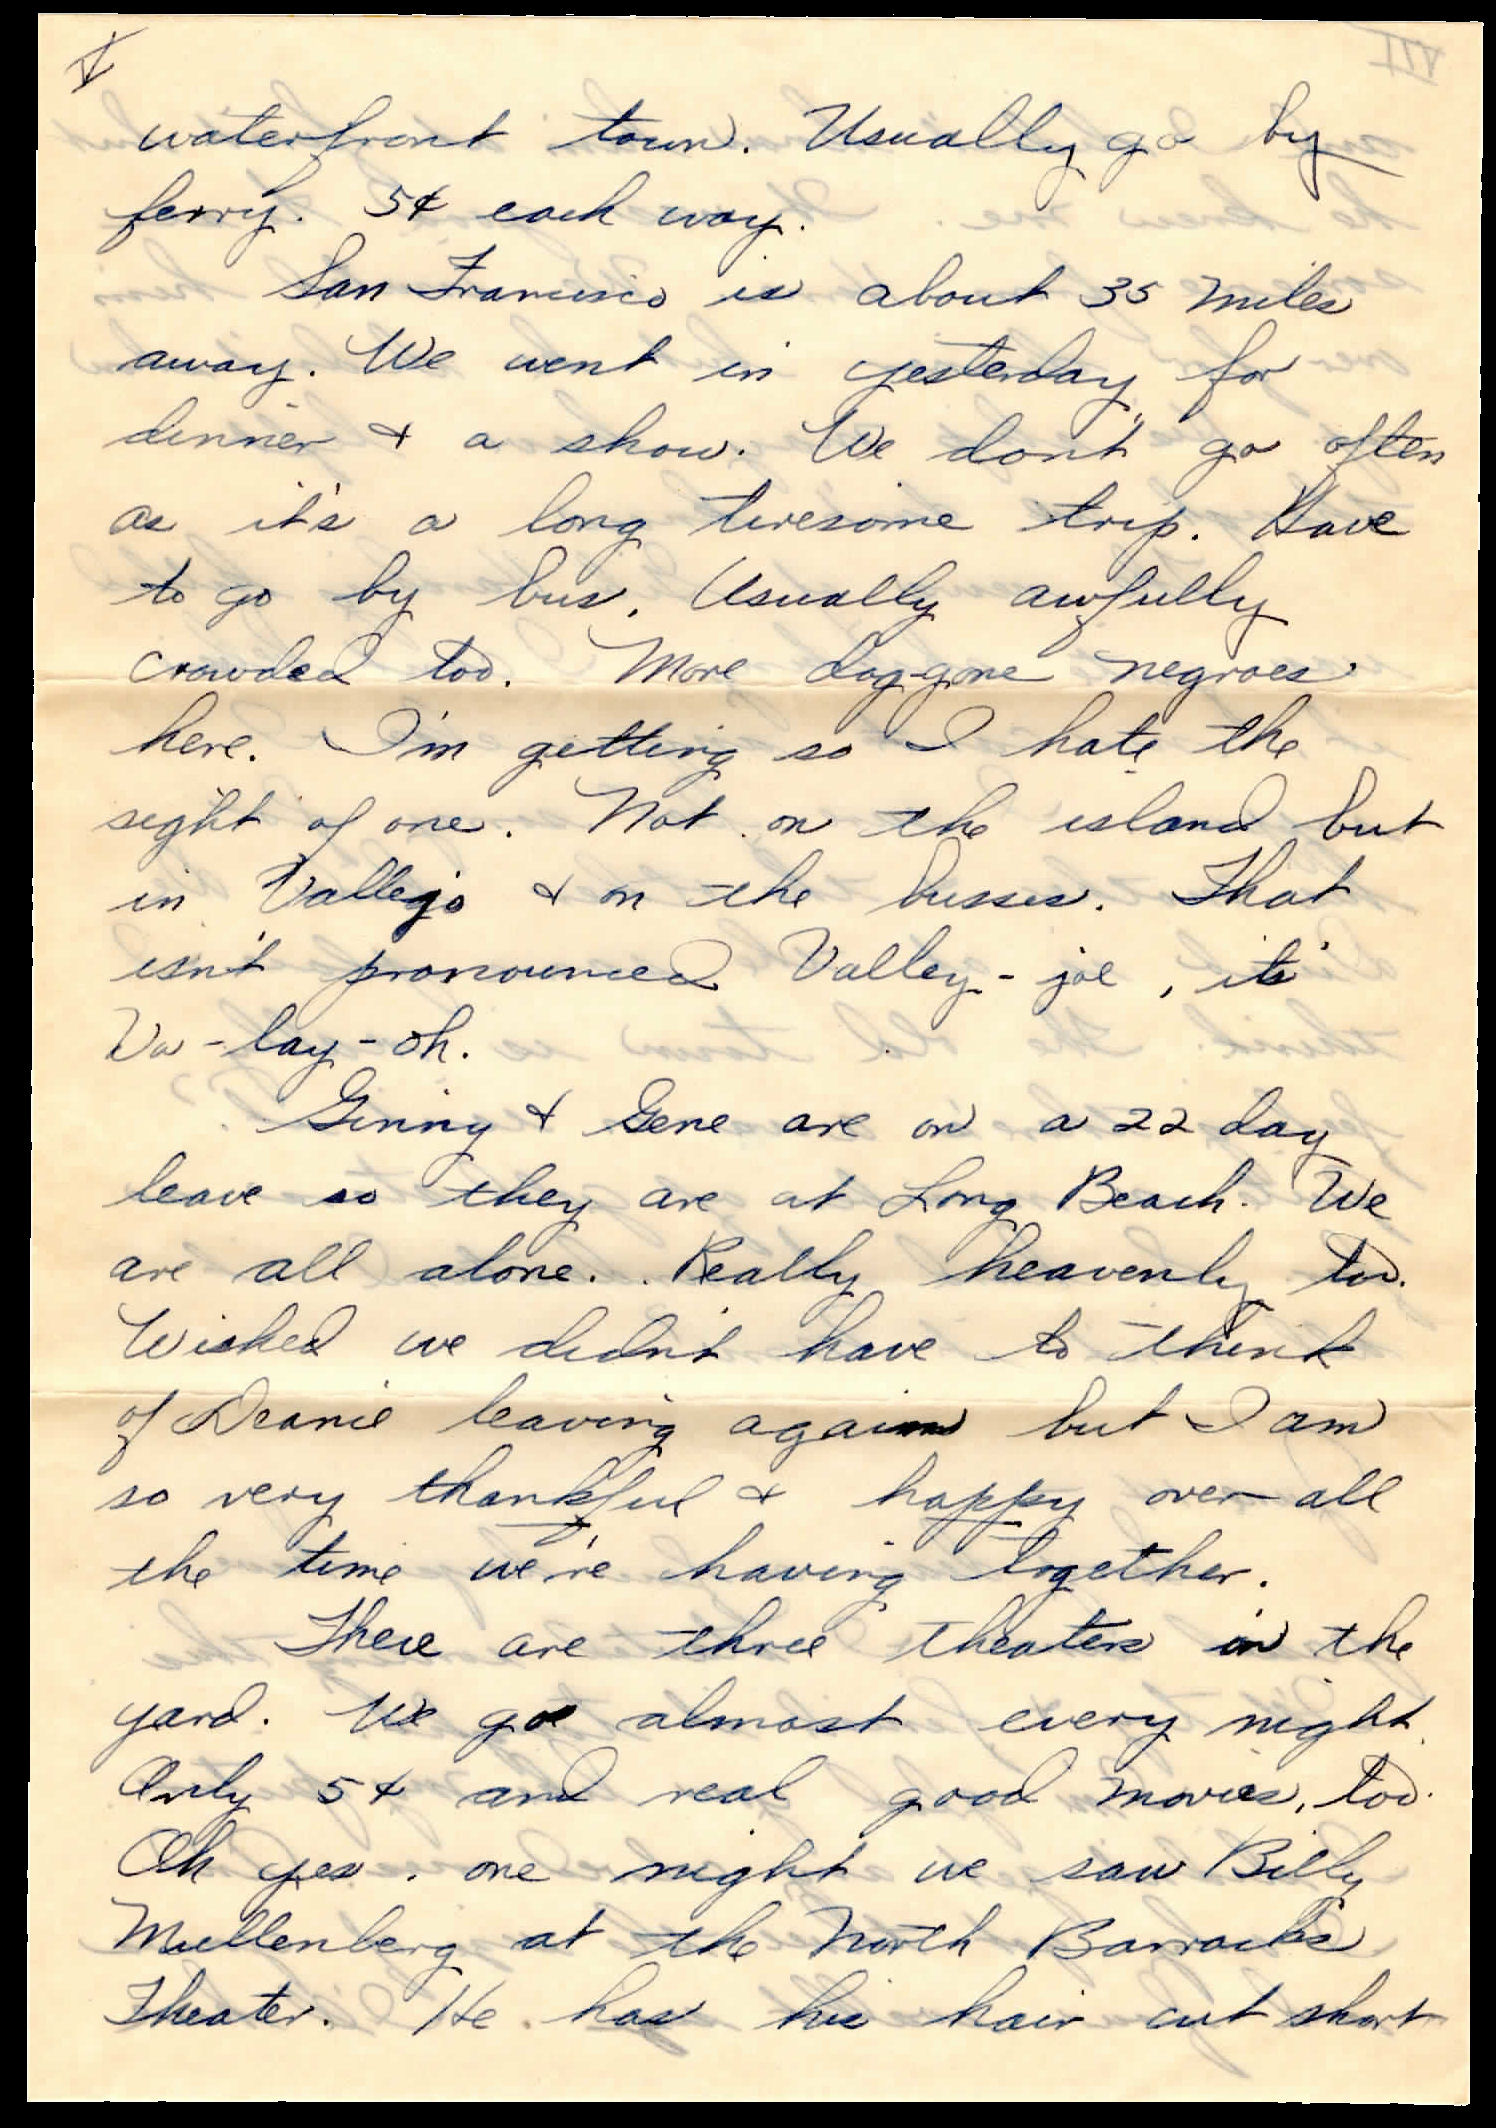 V
waterfront town. Usually go by
ferry. 5¢ each way.
San Francisco is about 35 miles
away. We went in yesterday for
dinner & a show. We don't go often
as it's a long tiresome trip. Have
to go by bus. Usually awfully
crowded too. More dog-gone negroes
here. I'm getting so I hate the
sight of one. Not on the island but
in Vallejo & on the busses. That
isn't pronounced Valley-joe, it's
Va-lay-oh.
Ginny & Gene are on a 22 day
leave so they are at Long Beach. We
are all alone. Really heavenly too.
Wished we didn't have to think
of Deanie leaving again but I am
so very thankful & happy over all
the time we're having together.
There are three theaters in the
yard. We go almost every night.
Only 5¢ and real good movies, too.
Oh yes. one night we saw Billy
Mullenberg at the North Barracks
Theater. He has his hair cut short